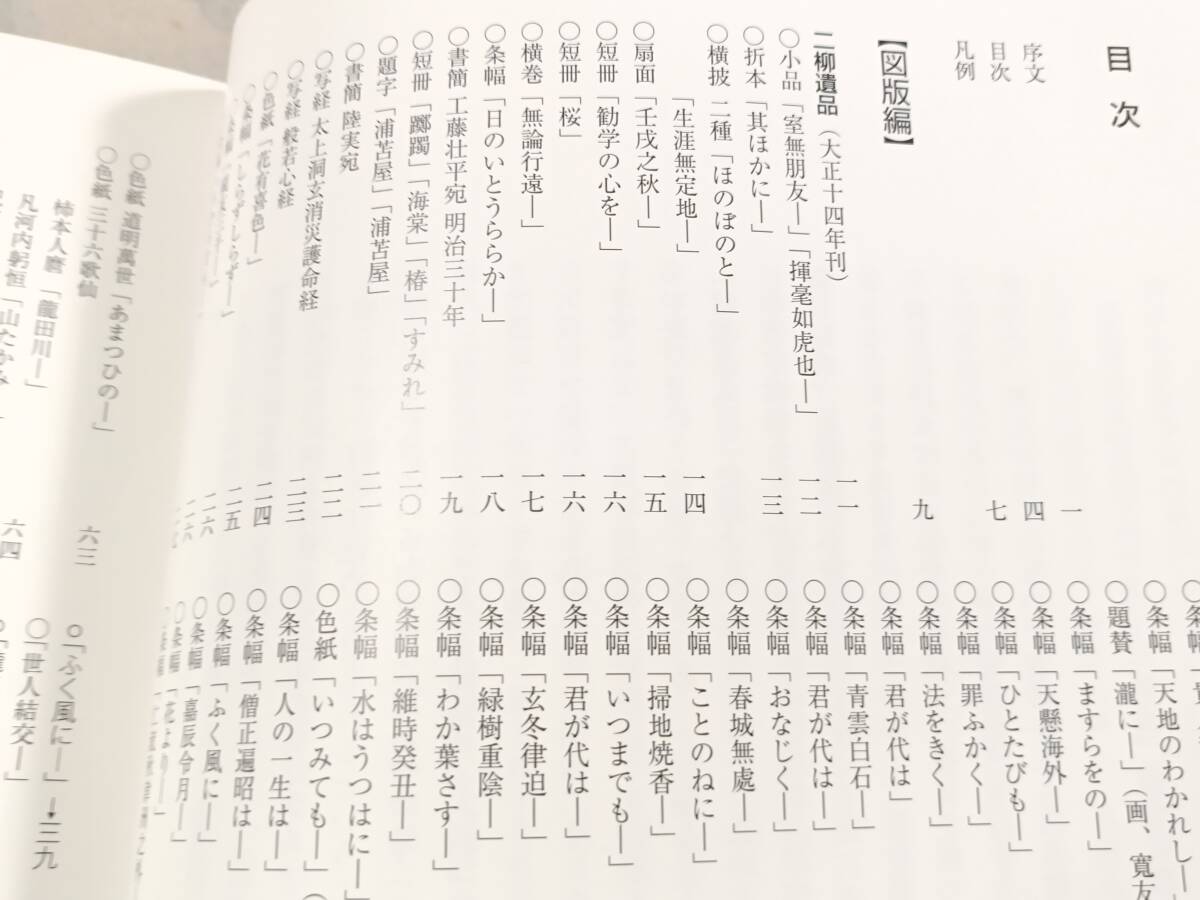 目次
序文 一
目次 四
凡例 七
【図版編】 九
二柳遺品(大正十四年刊) 一一
〇小品「室無朋友―」「揮毫如虎也―」 一二
〇折本「其ほかに―」 一三
〇横披 二種「ほのぼのと―」
「生涯無定地―」 一四
〇扇面「壬戌之秋―」 一五
〇短冊「勧学の心を―」 一六
〇短冊「桜」 一六
〇横巻「無論行遠―」 一七
〇条幅「日のいとうららか―」 一八
〇書簡 工藤壮平宛 明治三十年 一九
〇短冊「躑躅」「海棠」「椿」「すみれ」 二〇
〇題字「浦苫屋」「浦苫屋」 二一
〇書簡 陸実宛 二二
〇写経 太上洞玄消災護命経 二三
〇写経 般若心経 二四
〇色紙「花有喜色―」 二五
〇条幅「しらずしらず―」 二六
〇条幅「天地のわかれし―」
〇題賛「瀧に―」(画、寛友
〇条幅「ますらをの―」
〇条幅「天懸海外―」
〇条幅「ひとたびも―」
〇条幅「罪ふかく―」
〇条幅「法をきく―」
〇条幅「君が代は」
〇条幅「青雲白石―」
〇条幅「君が代は―」
〇条幅「おなじく―」
〇条幅「春城無處―」
〇条幅「ことのねに―」
〇条幅「掃地焼香―」
〇条幅「いつまでも―」
〇条幅「君が代は―」
〇条幅「玄冬律迫―」
〇条幅「緑樹重陰―」
〇条幅「わか葉さす―」
〇条幅「維時癸丑―」
〇条幅「水はうつはに―」
〇色紙「いつみても―」(
〇条幅「人の一生は―」
〇条幅「僧正遍昭は―」
〇条幅「ふく風に―」
〇条幅「嘉辰令月―」
〇条幅「花より―」
〇色紙 道明萬世「あまつひの―」 六三
〇色紙 三十六歌仙
柿本人麿「龍田川―」
凡河内躬恒「山たかみ 六四
〇「ふく風に―」→三九
〇「世人結交―」